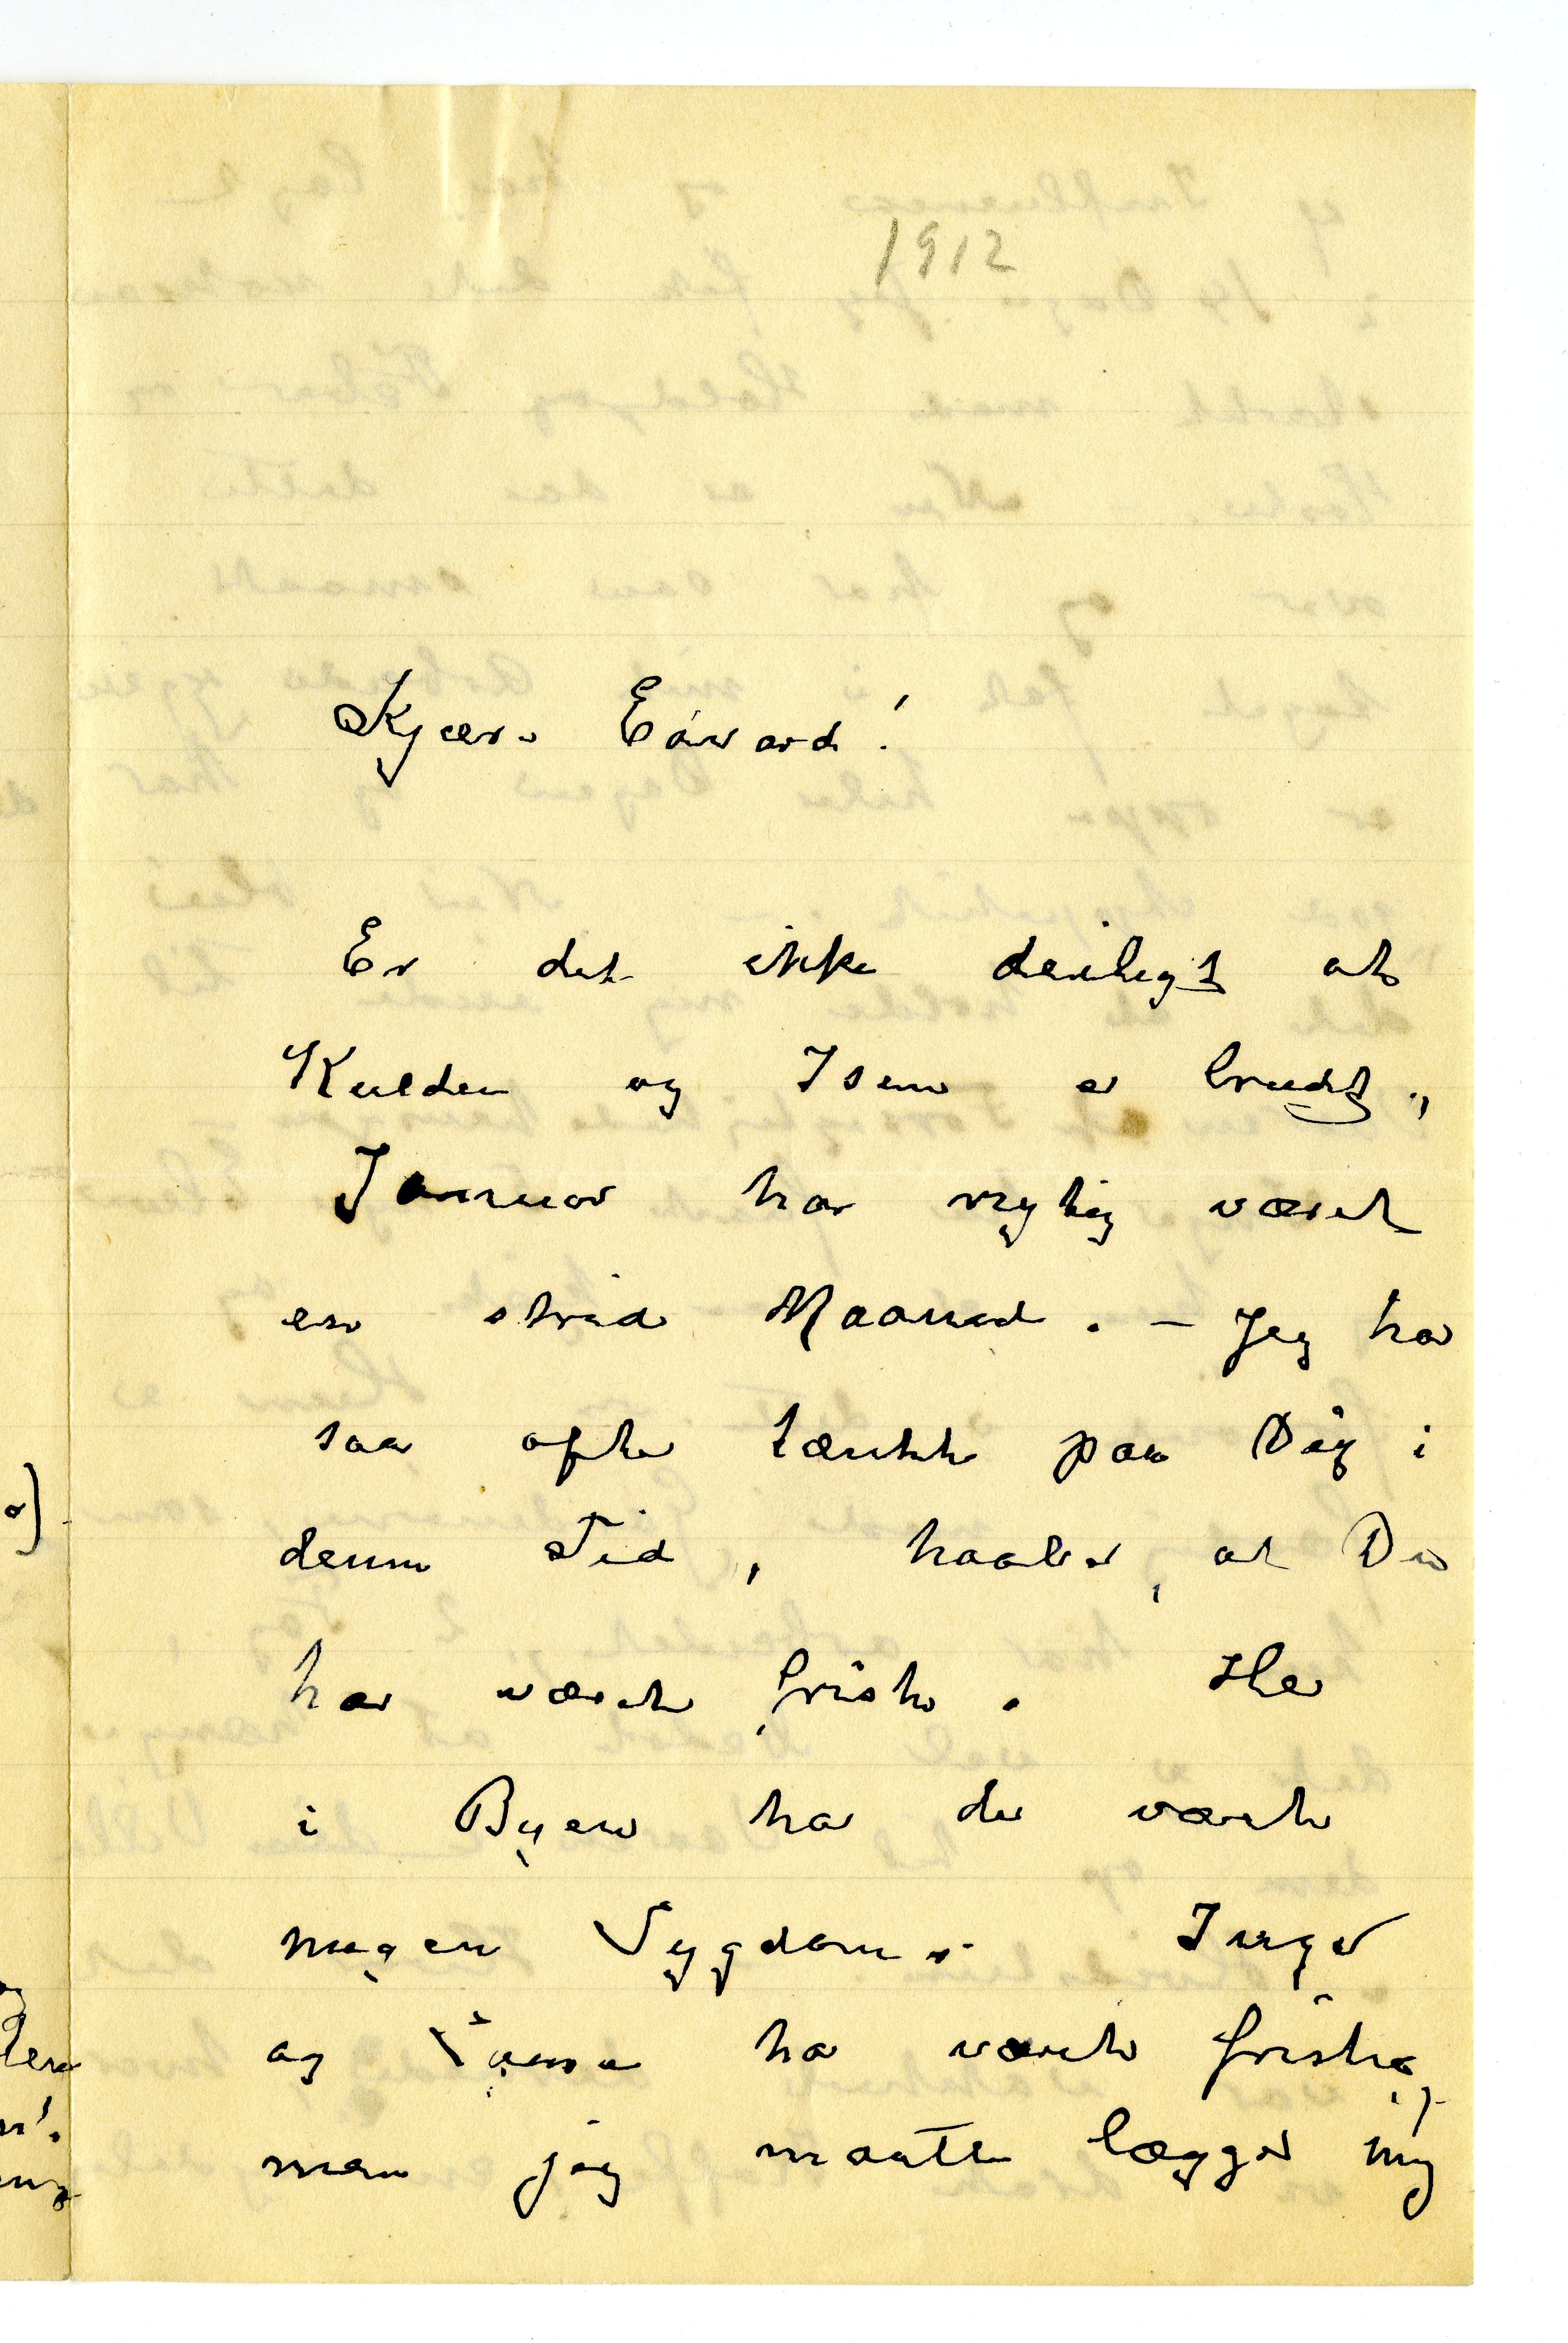 1912
Kjære Edvard!
Er det ikke deiligt at
Kulden og Isen er brudt,
Januar har rigtig været
en stræd Maaned. – Jeg har
saa ofte tænkt paa Dig i
denne Tid, haaber, at Du
har været frisk. Her
i Byen har der været
megen Sygdom. Inger
og har været friske,
men jeg maatte lægge mig